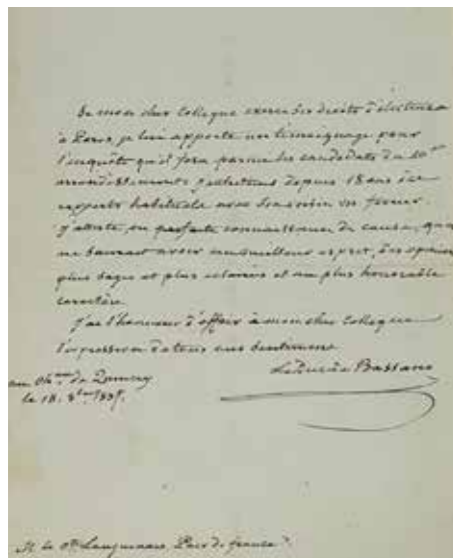 Si mon cher Collegue exerce ses droits d'électeur
à Paris, je lui apporte un témoignage pour
l'enquête qu'il fera parmi les candidats du 10me
arrondissement. J'entretiens depuis 18 ans des
rapports habituels avec
J'atteste, en parfaite connaissance de cause, qu'on
ne saurait avoir un meilleur esprit, des opinions
plus sages et plus éclairées et un plus honorable
caractère.
J'ai l'honneur d'offrir à mon cher Collegue
l'expression de tous mes sentimens
Le Duc de Bassano
au de
le 18. 8bre
M. le Cte Lanjuinais, Pair de france.